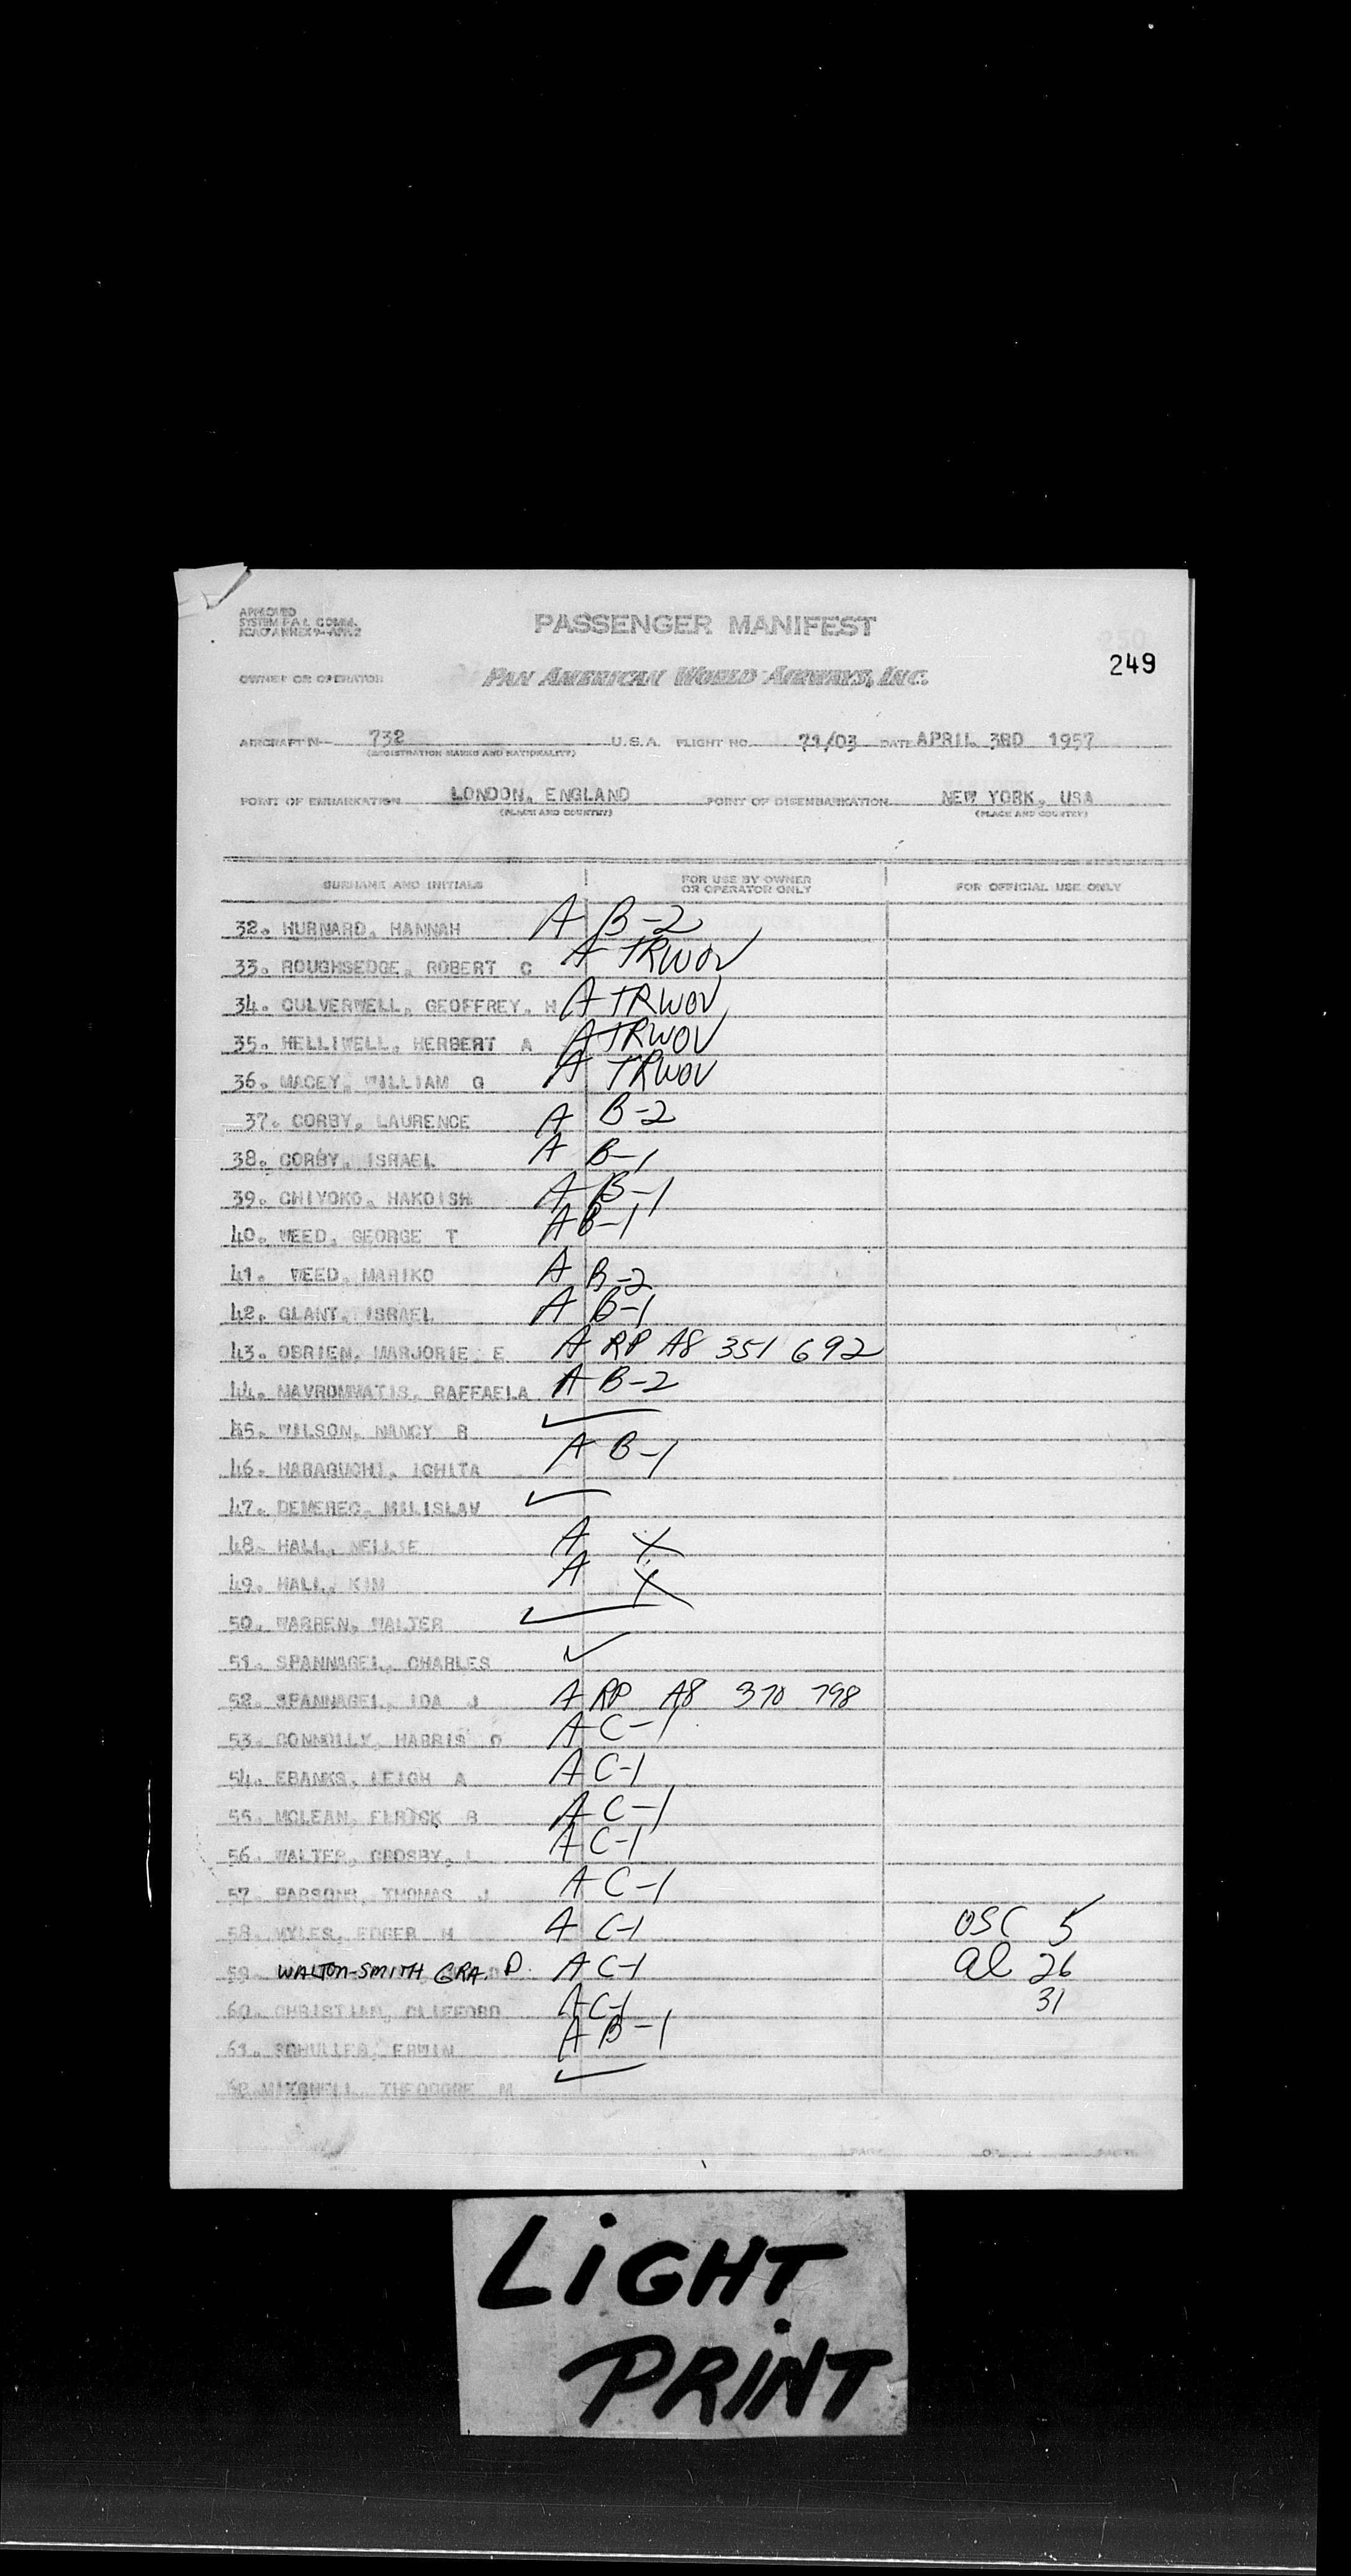 APPROVED
SYSTEM F.A.L. COMM.
ICAO ANNEX 9-APP.2
PASSENGER MANIFEST
249
OWNER OR OPERATOR PAN AMERICAN WORLD AIRWAYS, INC.
AIRCRAFT N- 732 U.S.A. FLIGHT NO. 71/03 DATE APRIL 3RD 1957
(REGISTRATION MARKS AND NATIONALITY)
POINT OF EMBARKATION LONDON, ENGLAND POINT OF DISEMBARKATION NEW YORK, USA
(PLACE AND COUNTRY) (PLACE AND COUNTRY)
SURNAME AND INITIALS FOR USE BY OWNER OR OPERATOR ONLY FOR OFFICIAL USE ONLY
32. HURNARD, HANNAH A B-2
33. ROUGHSEDGE, ROBERT C A TRWOV
34. CULVERWELL, GEOFFREY, H A TRWOV
35. HELLIWELL, HERBERT A A TRWOV
36. MACEY, WILLIAM G A TRWOV
37. CORBY, LAURENCE A B-2
38. CORBY, ISRAEL A B-1
39. CHIYOKO, HAKOISH A B-1
40. WEED, GEORGE T A B-1
41. WEED, MARIKO A B-2
42. GLANT, ISRAEL A B-1
43. OBRIEN, MARJORIE, E A RP A8 351 692
44. MAVROMVATIS, RAFFAELA A B-2
45. WILSON, NANCY R ✓
46. HARAGUCHI, ICHITA A B-1
47. DEMEREC, MILISLAV ✓
48. HALL, NELLIE A X
49. HALL, KIM A X
50. WARREN, WALTER ✓
51. SPANNAGEL, CHARLES ✓
52. SPANNAGEL, IDA J A RP A8 370 798
53. CONNOLLY, HARRIS O A C-1
54. EBANKS, LEIGH A A C-1
55. MCLEAN, ELRICK B A C-1
56. WALTER, CROSBY, L A C-1
57. PARSONS, THOMAS J A C-1
58. MYLES, EDGER H A C-1 OSC 5
59. WALTON-SMITH GRA. D. A C-1 al 26
60. CHRISTIAN, CLIFFORD A C-1 31
61. SCHULLER, ERWIN A B-1
62. MITCHELL, THEODORE M ✓
PAGE OF PAGES
LiGHT
PRiNT